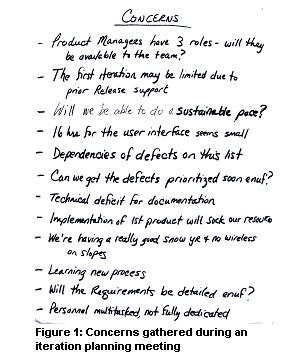 CONCERNS
- Product Managers have 3 roles - will they
be available to the team?
- The first iteration may be limited due to
prior Release support
- Will we be able to do a sustainable pace?
- 16 hrs for the user interface seems small
- Dependencies of defects on this list
- Can we get the defects prioritized soon enuf?
- Technical deficit for documentation
- Implementation of 1st product will suck our resource
- We're having a really good snow yr & no wireless
on slopes
- Learning new process
- Will the Requirements be detailed enuf?
- Personnel multitasked, not fully dedicated
Figure 1: Concerns gathered during an
iteration planning meeting